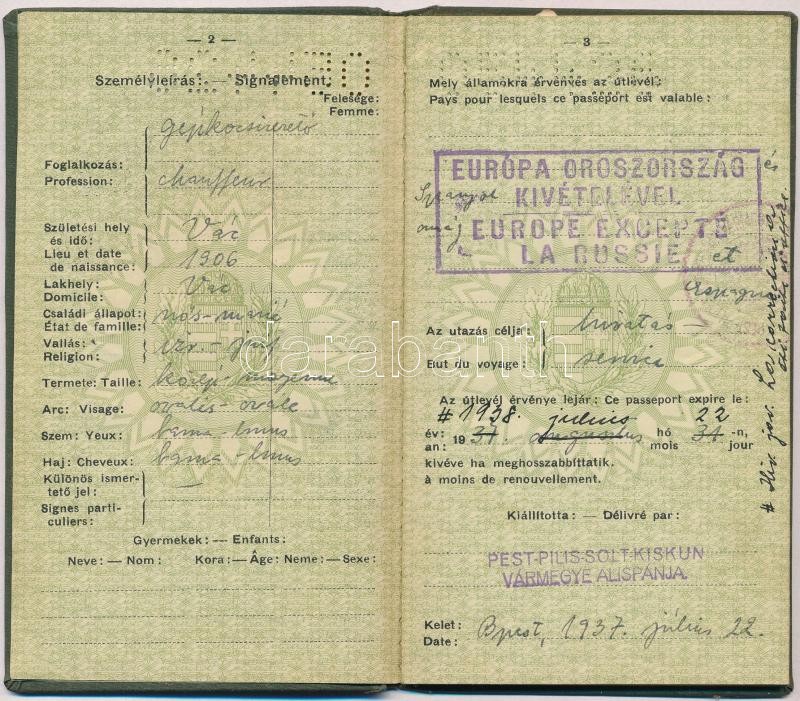 — 2 —
Személyleírás: — Signalement:
Felesége:
Femme:
gépkocsivezető
Foglalkozás:
Profession: chauffeur
Születési hely
és idő: Vác
Lieu et date
de naissance: 1906
Lakhely: Vác
Domicile:
Családi állapot: nős-marié
État de famille:
Vallás: izr. - juif
Religion:
Termete: Taille: közép - moyenne
Arc: Visage: ovális - ovale
Szem: Yeux: barna - brun
Haj: Cheveux: barna - brun
Különös ismer-
tető jel: —
Signes parti-
culiers:
Gyermekek: — Enfants:
Neve: — Nom: Kora: — Âge: Neme: — Sexe:
— 3 —
Mely államokra érvényes az útlevél:
Pays pour lesquels ce passeport est valable:
EURÓPA OROSZORSZÁG és
Spanyol KIVÉTELÉVEL
ország EUROPE EXCEPTÉ
LA RUSSIE et
Espagne
Az utazás célja: hivatás -
But du voyage: service
Az útlevél érvénye lejár: Ce passeport expire le:
# 1938. július 22
év: 19 37. augusztus hó 31 -n,
an: mois jour
kivéve ha meghosszabbíttatik.
à moins de renouvellement.
Kiállította: — Délivré par:
PEST-PILIS-SOLT-KISKUN
VÁRMEGYE ALISPÁNJA.
Kelet:
Date: Bpest, 1937. július 22.
# Hiv. jav. La correction a
été faite d'office.
darabanth